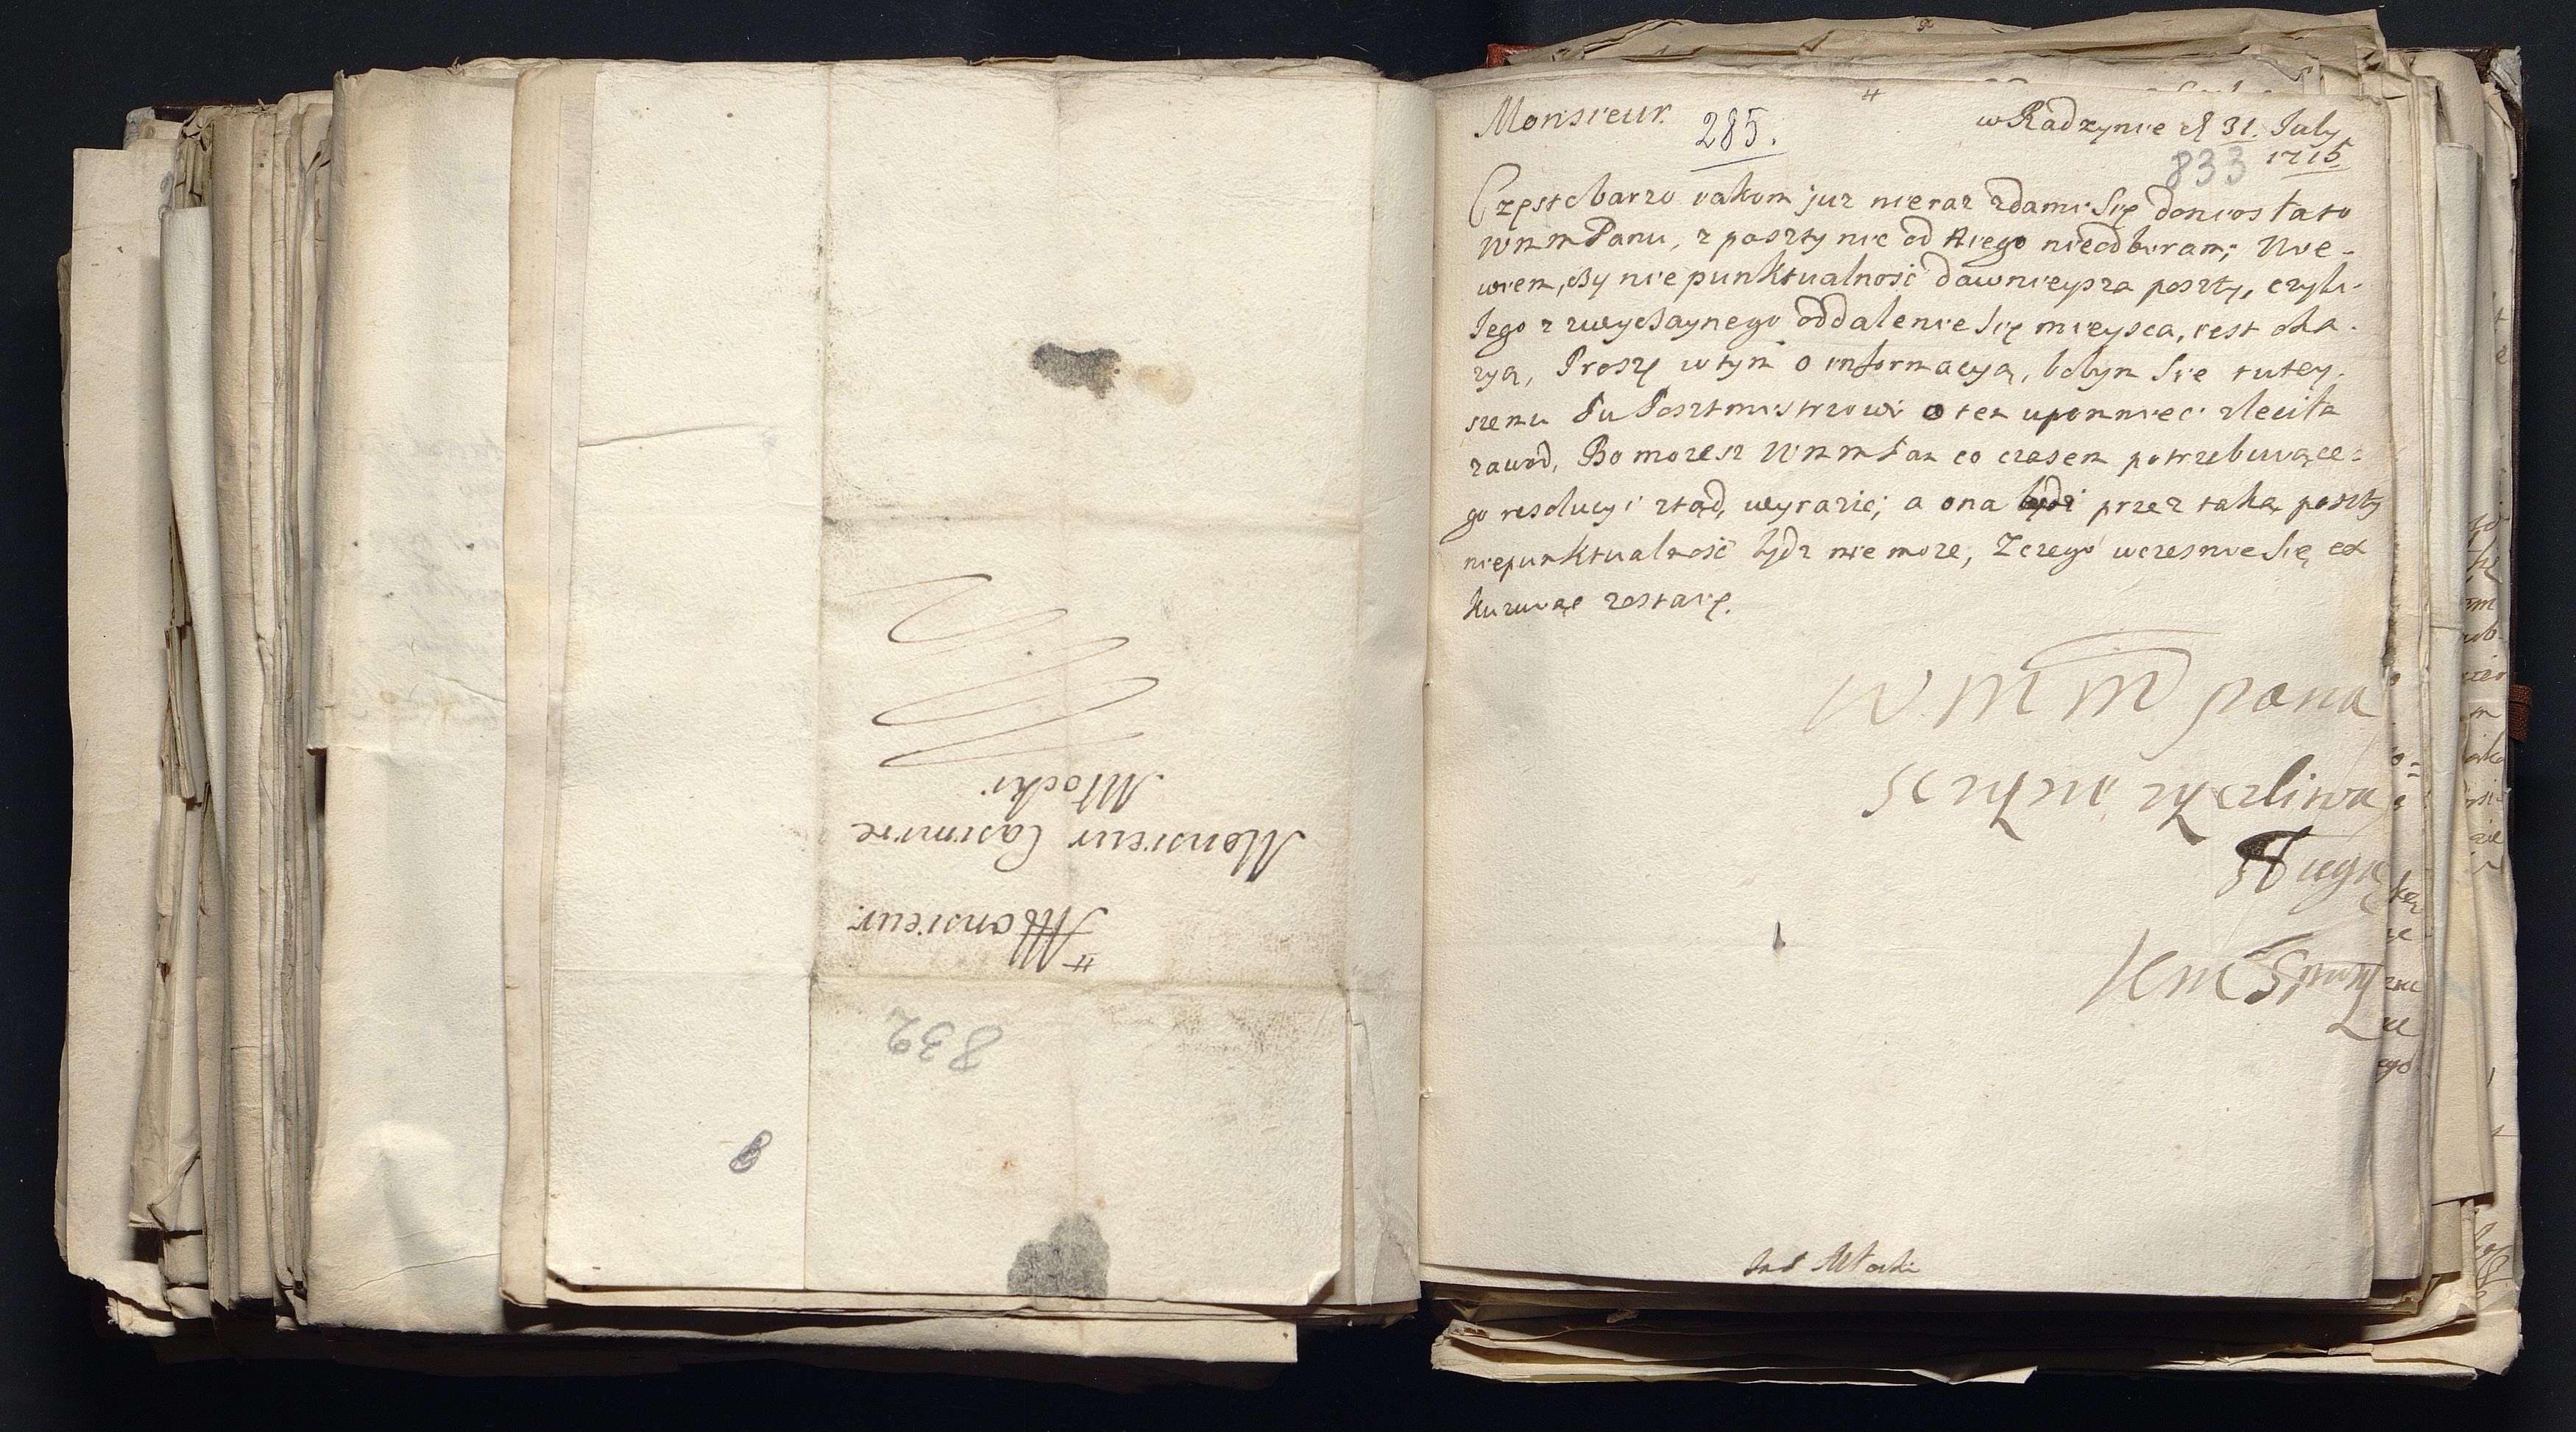 #
Monsieur
Monsieur Casimire
Młocki
832
8
Monsieur.
#
w Radzynie d 31. July
285.
1715
833
Częste barzo iakom iuz nieraz zdami Się doniosła to
WMM Panu, z poszty nic od Niego nieodbieram; Nie-
wiem, czy nie punktualność dawnieysza poszty, czyli
Jego z zwyczaynego oddalenie Się mieysca, iest oka-
zyą, Proszę w tym o informacyą, bobym Sie tutey-
szemu Pu Posztmistrzowi o ten upomniec zleciła
zawod, Bo mozesz WMM Pan co czasem potrzebuiące-
go resolucyi ztąd, wyrazic; a ona bydz przez taką poszty
niepunktualność bydz nie moze, Z czego wczesnie Się ex
kuzuiąc zostaię.
WMM pana
zyczliwa
Sługa
Jmć Młocki